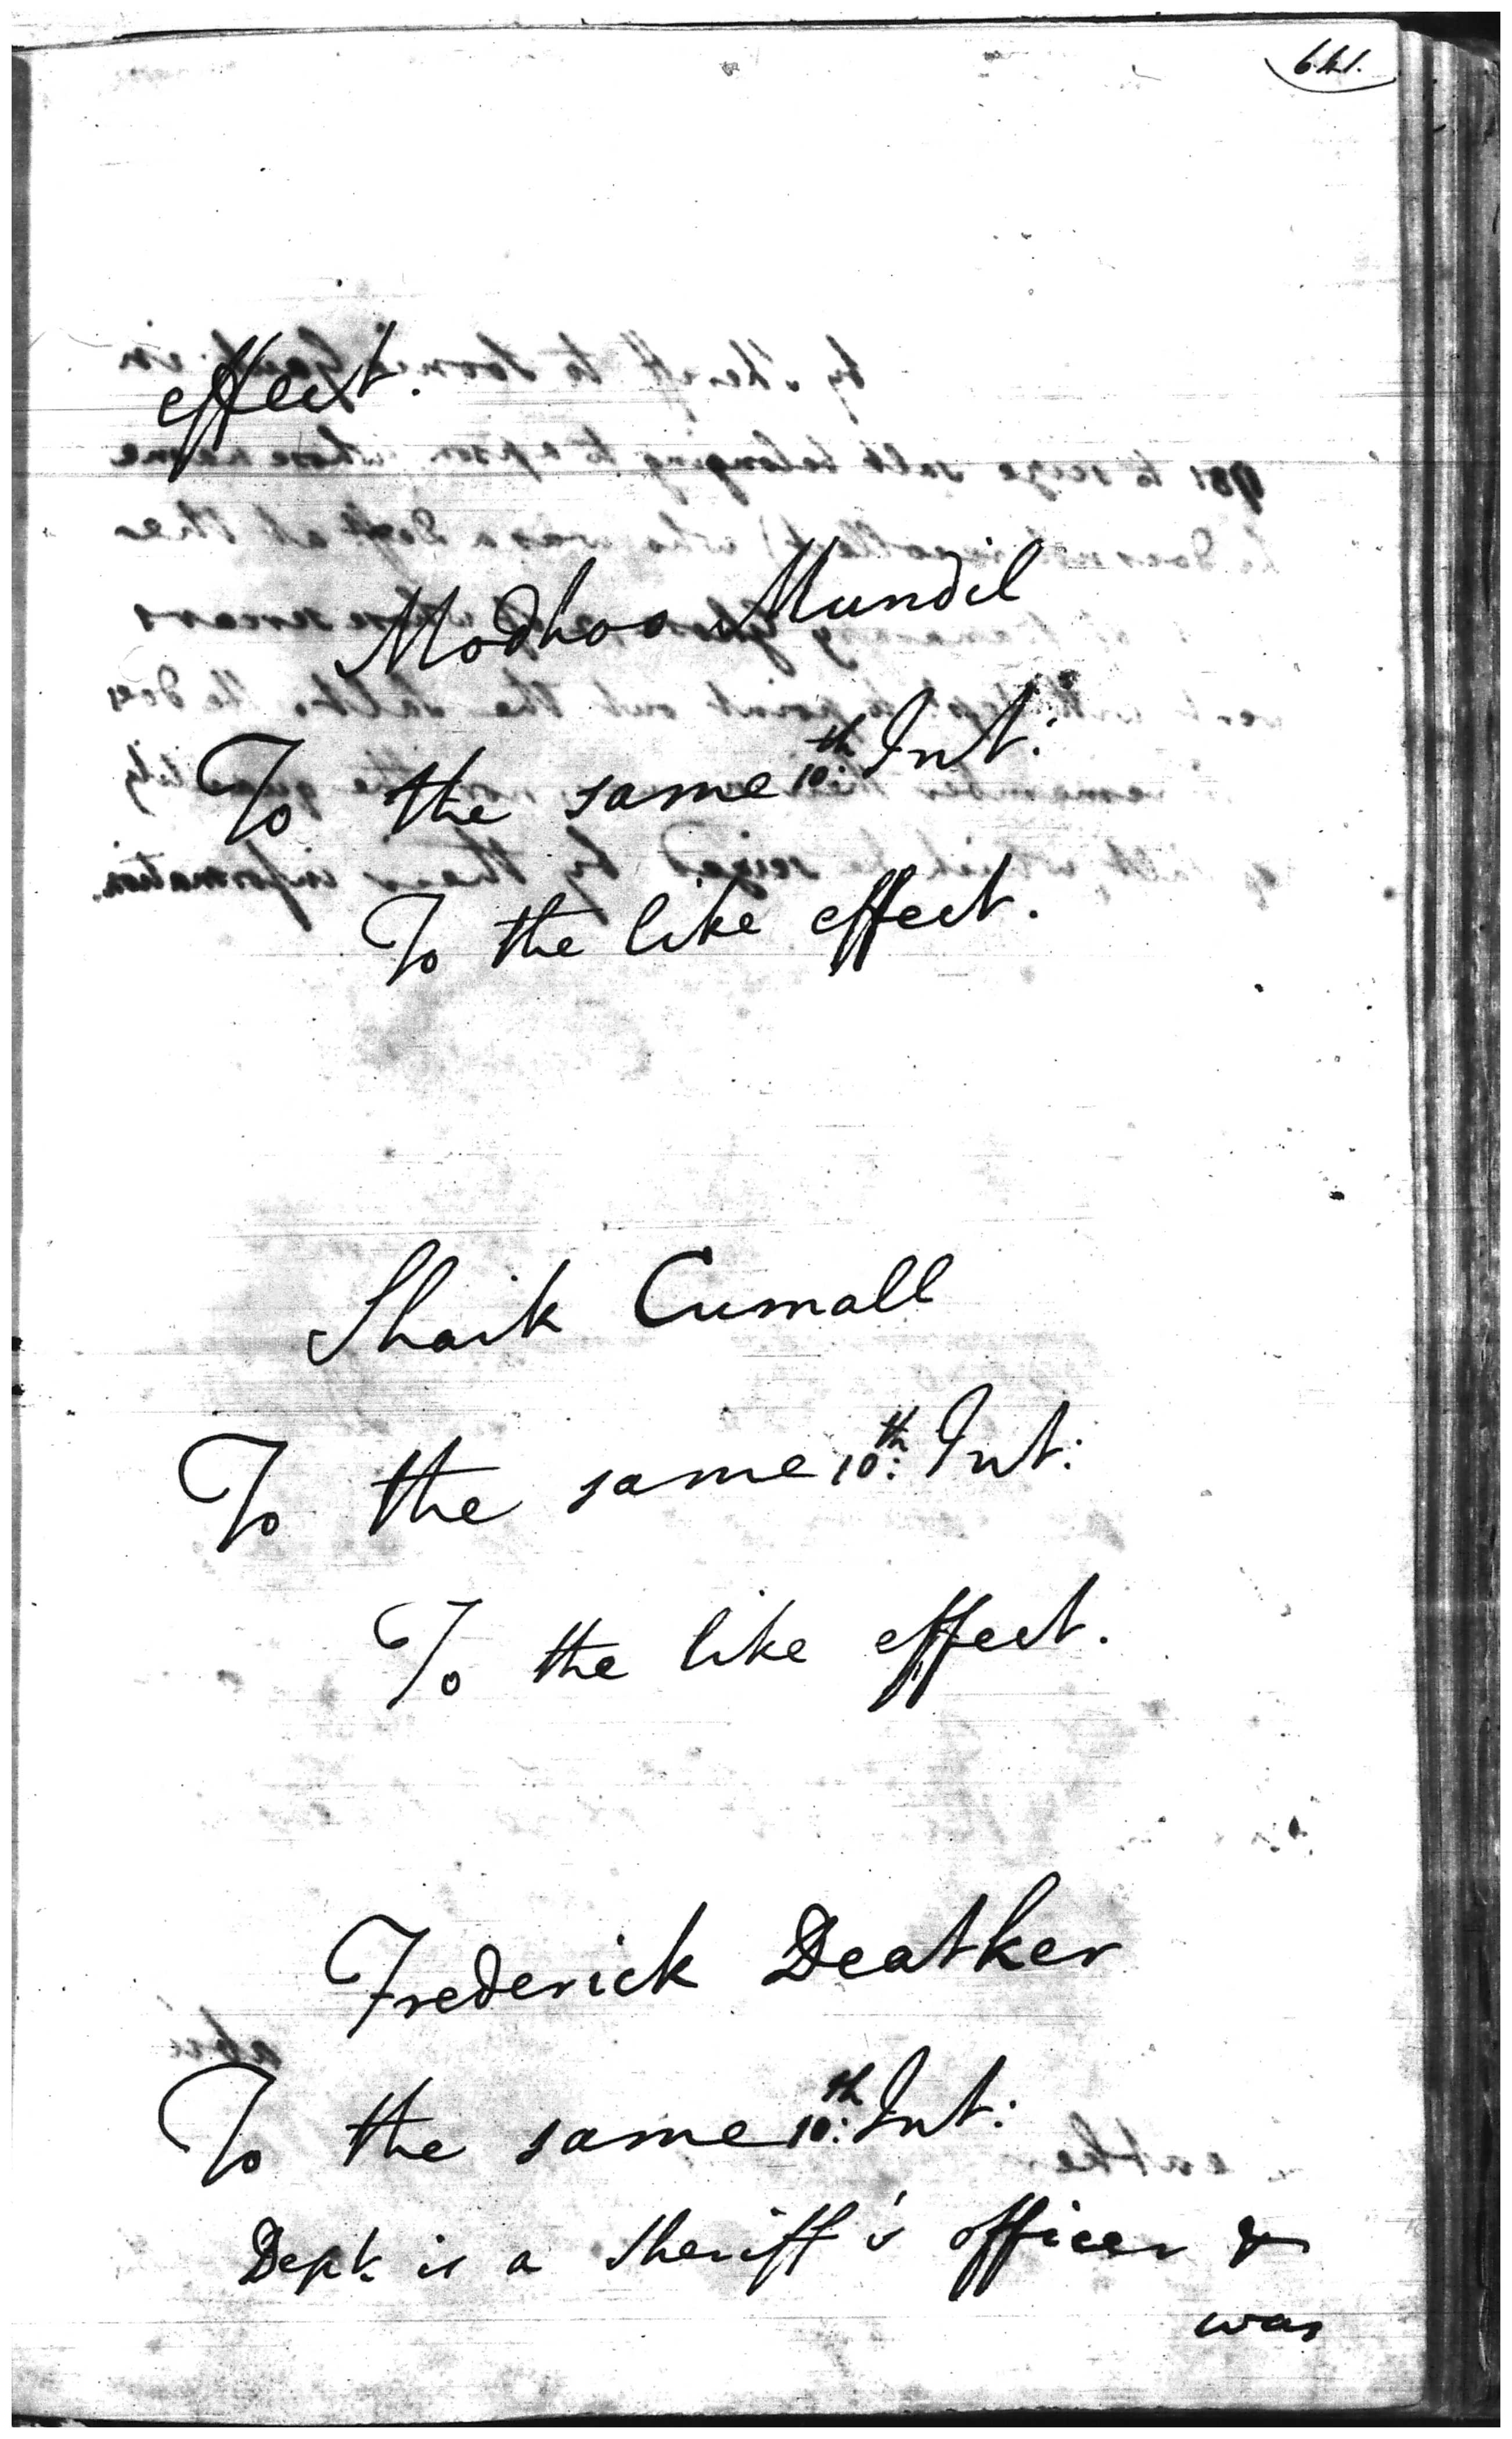 641.
effect.
Modhoo Mundil
To the same 10:th Int:
To the like effect.
Shaik Cumall
To the same 10:th Int:
To the like effect.
Frederick Deatker
To the same 10:th Int:
Dept. is a Sheriff's officer &
was